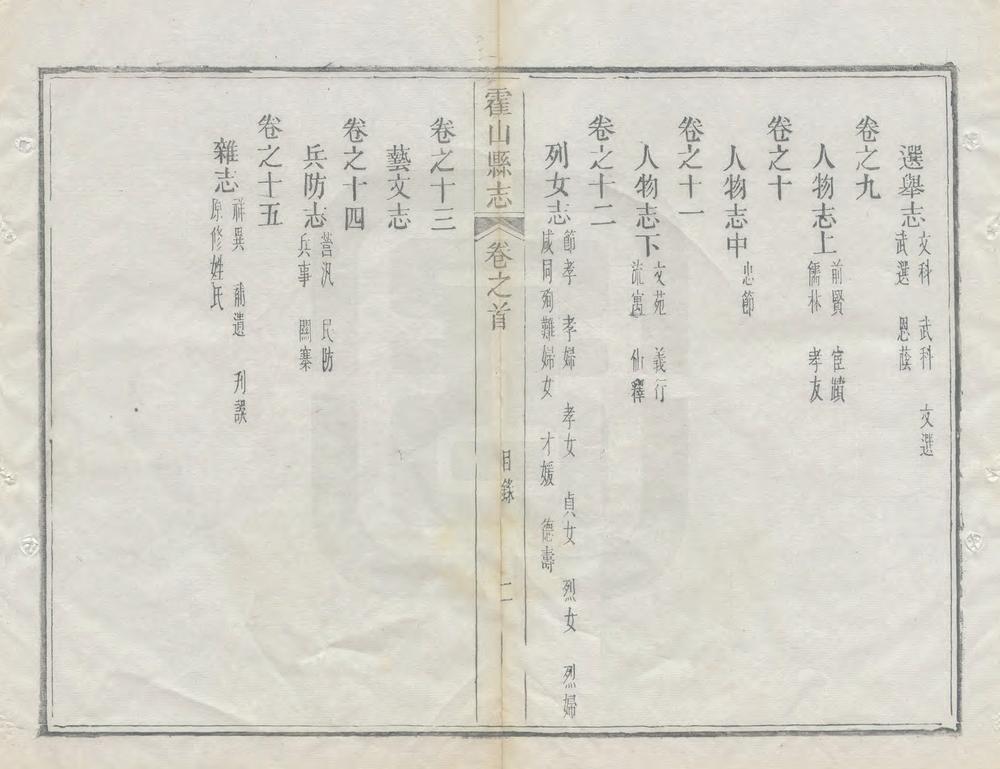 選舉志
文科　武科　文選
武選　恩蔭
卷之九
人物志上
前賢　宦蹟
儒林　孝友
卷之十
人物志中
忠節
卷之十一
人物志下
文苑　義行
流寓　仙釋
卷之十二
列女志
節孝　孝婦　孝女　貞女　烈女　烈婦
咸同殉難婦女　才媛　德壽
霍山縣志　卷之首　目錄　二
卷之十三
藝文志
卷之十四
兵防志
營汛　民防
兵事　關寨
卷之十五
雜志
祥異　補遺　刋誤
原修姓氏